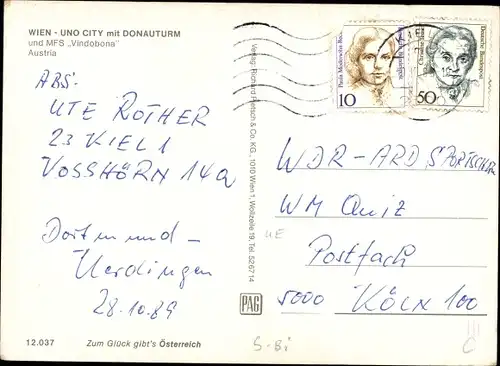 WIEN - UNO CITY mit DONAUTURM
und MFS „Vindobona"
Austria
ABS:
UTE ROTHER
23 KIEL 1
VOSSHÖRN 14a
Dortmund –
Uerdingen
28.10.89
12.037
Zum Glück gibt's Österreich
Verlag: Richard Pietsch & Co. KG., 1010 Wien 1, Wollzeile 19, Tel. 52 67 14
PAG
Paula Modersohn-Bec
10
Deutsche Bundespost
50
KIEL
WDR - ARD SPORTSCHAU
WM Quiz
Postfach
5000 KÖLN 100
ME
S-Bi
C